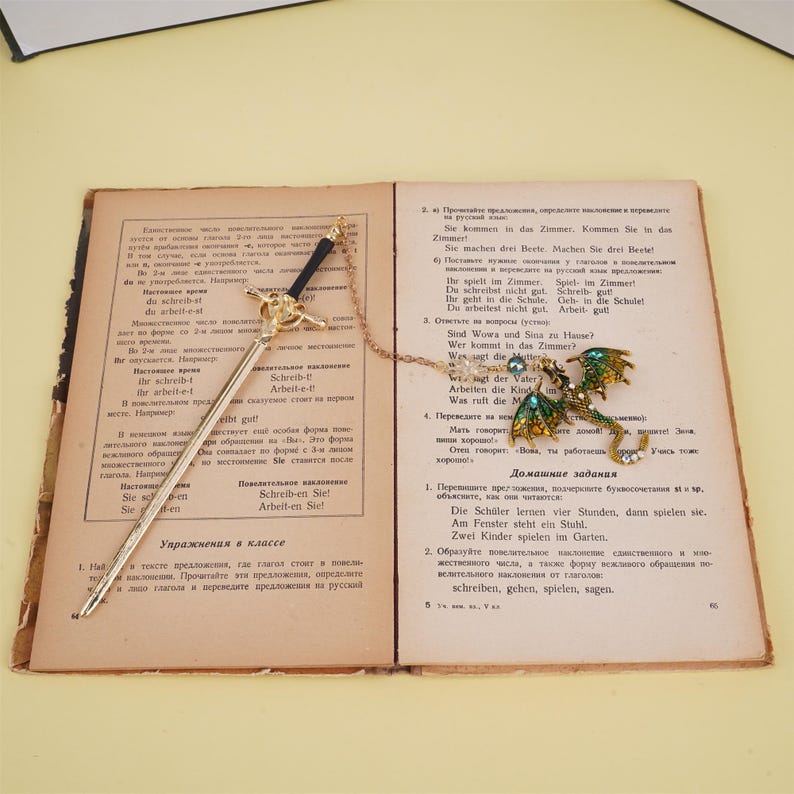 Единственное число повелительного наклонения
зуется от основы глагола 2-го лица настоящего
путём прибавления окончания -е, которое часто
В том случае, если основа глагола оканчивается
или n, окончание -е употребляется.
Во 2-м лице единственного числа личное местоимение
du не употребляется. Например:
Настоящее время Повелительное наклонение
du schreib-st (e)!
du arbeit-e-st
Множественное число повелительного совпа-
дает по форме со 2-м лицом множественного числа настоя-
щего времени.
Во 2-м лице множественного числа личное местоимение
ihr опускается. Например:
Настоящее время Повелительное наклонение
ihr schreib-t Schreib-t!
ihr arbeit-e-t Arbeit-e-t!
В повелительном предложении сказуемое стоит на первом
месте. Например:
gut!
В немецком языке существует ещё особая форма пове-
лительного при обращении на «Вы». Эта форма
вежливого обращения совпадает по форме с 3-м лицом
множественного числа, но местоимение Sie ставится после
глагола. Например:
Настоящее время Повелительное наклонение
Sie schreib-en Schreib-en Sie!
Sie arbeit-en Arbeit-en Sie!
Упражнения в классе
1. в тексте предложения, где глагол стоит в повели-
тельном наклонении. Прочитайте эти предложения, определите
и лицо глагола и переведите предложения на русский
64
2. а) Прочитайте предложения, определите наклонение и переведите
на русский язык:
Sie kommen in das Zimmer. Kommen Sie in das
Zimmer!
Sie machen drei Beete. Machen Sie drei Beete!
б) Поставьте нужные окончания у глаголов в повелительном
наклонении и переведите на русский язык предложения:
Ihr spielt im Zimmer. Spiel- im Zimmer!
Du schreibst nicht gut. Schreib- gut!
Ihr geht in die Schule. Geh- in die Schule!
Du arbeitest nicht gut. Arbeit- gut!
3. Ответьте на вопросы (устно):
Sind Wowa und Sina zu Hause?
Wer kommt in das Zimmer?
Was sagt die Mutter?
sagt der Vater?
Arbeiten die Kinder im
Was ruft die
4. Переведите на письменно):
Мать говорит: домой! пишите! Зина,
пиши хорошо!»
Отец говорит: «Вова, ты работаешь Учись тоже
хорошо!»
Домашние задания
1. Перепишите предложения, подчеркните буквосочетания st и sp,
объясните, как они читаются:
Die Schüler lernen vier Stunden, dann spielen sie.
Am Fenster steht ein Stuhl.
Zwei Kinder spielen im Garten.
2. Образуйте повелительное наклонение единственного и мно-
жественного числа, а также форму вежливого обращения по-
велительного наклонения от глаголов:
schreiben, gehen, spielen, sagen.
5 Уч. нем. яз., V кл. 65